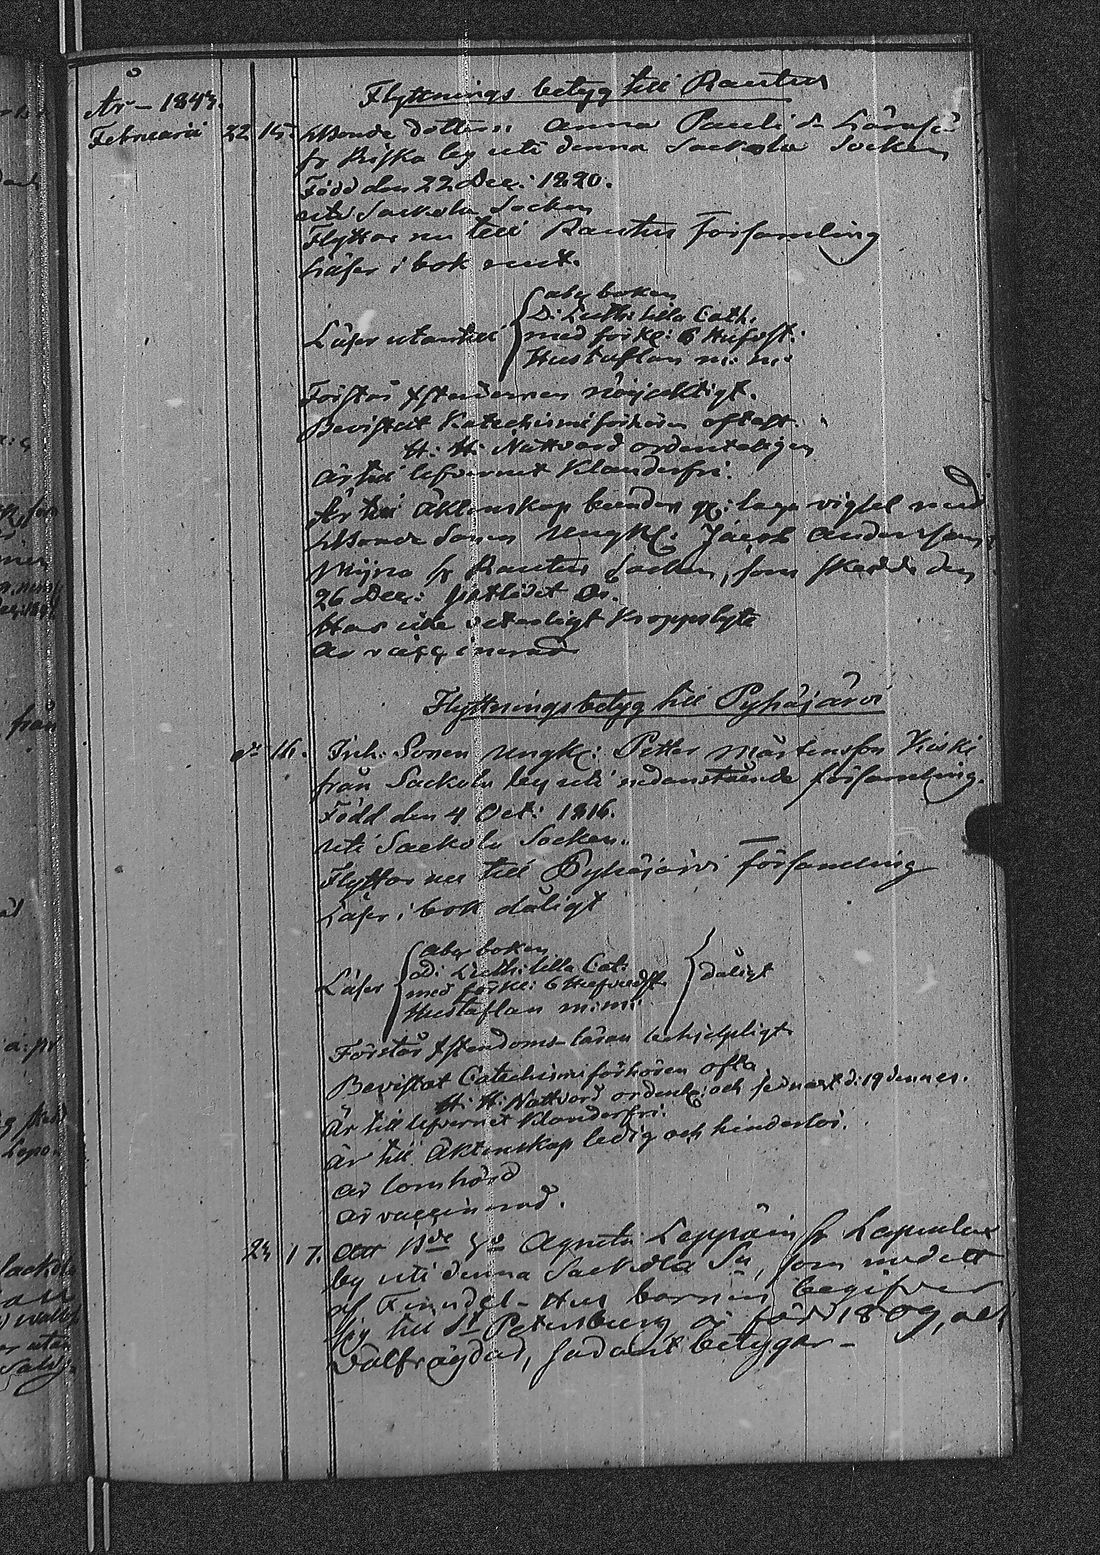 År - 1843.
Flyttnings betyg till Rautus
Februarii 22 15. Bonde dottern Anna Pauli dr
fr Riska by uti denna Sackola Socken
Född den 22 Dec: 1820.
uti Sackola Socken
Flyttar nu till Rautus Församling
Läser i bok rent.
Läser utantill
abc boken
D: Luth: lilla Cath.
med förkl: 6 Hufvdst:
Hustaflan m: m:
Förstår Xstendomen nöjaktigt.
Bevistat Katechismi förhören oftast.
H: H: Nattvard ordenteligen
Är till lefvernet Klanderfri.
Är till Äktenskap bunden gm laga vigsel med
Bonde Sonen Ungk: Jacob Andersson
fr Rautus Socken, som skedde den
26 Dec: sistlidet år.
Har icke veterligt Kroppslyte
Är vaccinerad
Flyttningsbetyg till Pyhäjärvi
16. Inh: Sonen Ungk: Petter Mårtensson Kiiski
från Sackola by uti nedanstående församling.
Född den 4 Oct: 1816.
uti Sackola Socken.
Flyttar nu till Pyhäjärvi Församling
Läser i bok dåligt
Läser
abc boken
D: Luth: lilla Cat:
med förkl: 6 Hufvudst.
Hustaflan m: m:
dåligt
Förstår Xstendoms-läran behjelpligt
Bevistat Catechismi förhören ofta
H: H: Nattvard ordentl: och sednast d: 19 dennes.
Är till lefvernet Klanderfri.
Är till Äktenskap ledig och hinderlös.
Är lomhörd
Är vaccinerad.
24 17. Att Bde Agneta Leppäin fr
by uti denna Sackola Sn, som medelst
af Hus barnen begifver
sig till St Petersburg är född 1809, och
välfrägdad, sådant betygar -